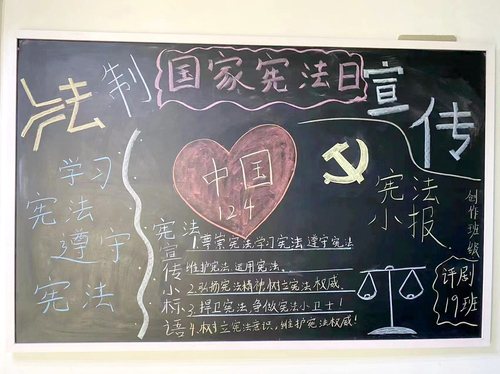 法制
国家宪法日
宣传
学习
宪法
遵守
宪法
中国
12.4
宪法宣传小标语
1.尊崇宪法,学习宪法,遵守宪法
维护宪法,运用宪法。
2.弘扬宪法精神,树立宪法权威。
3.捍卫宪法,争做宪法小卫士!
4.树立宪法意识,维护宪法权威!
宪法
小报
创作班级
评剧
19班